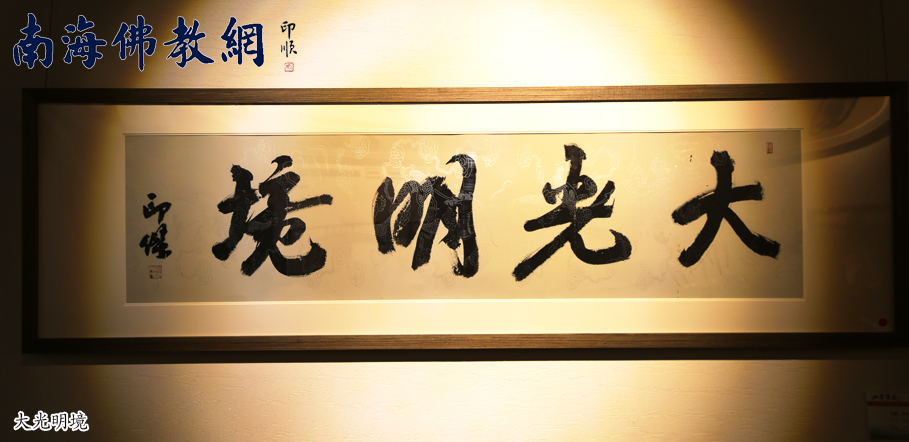 南海佛教網
印順
大光明境
印傑
大光明境